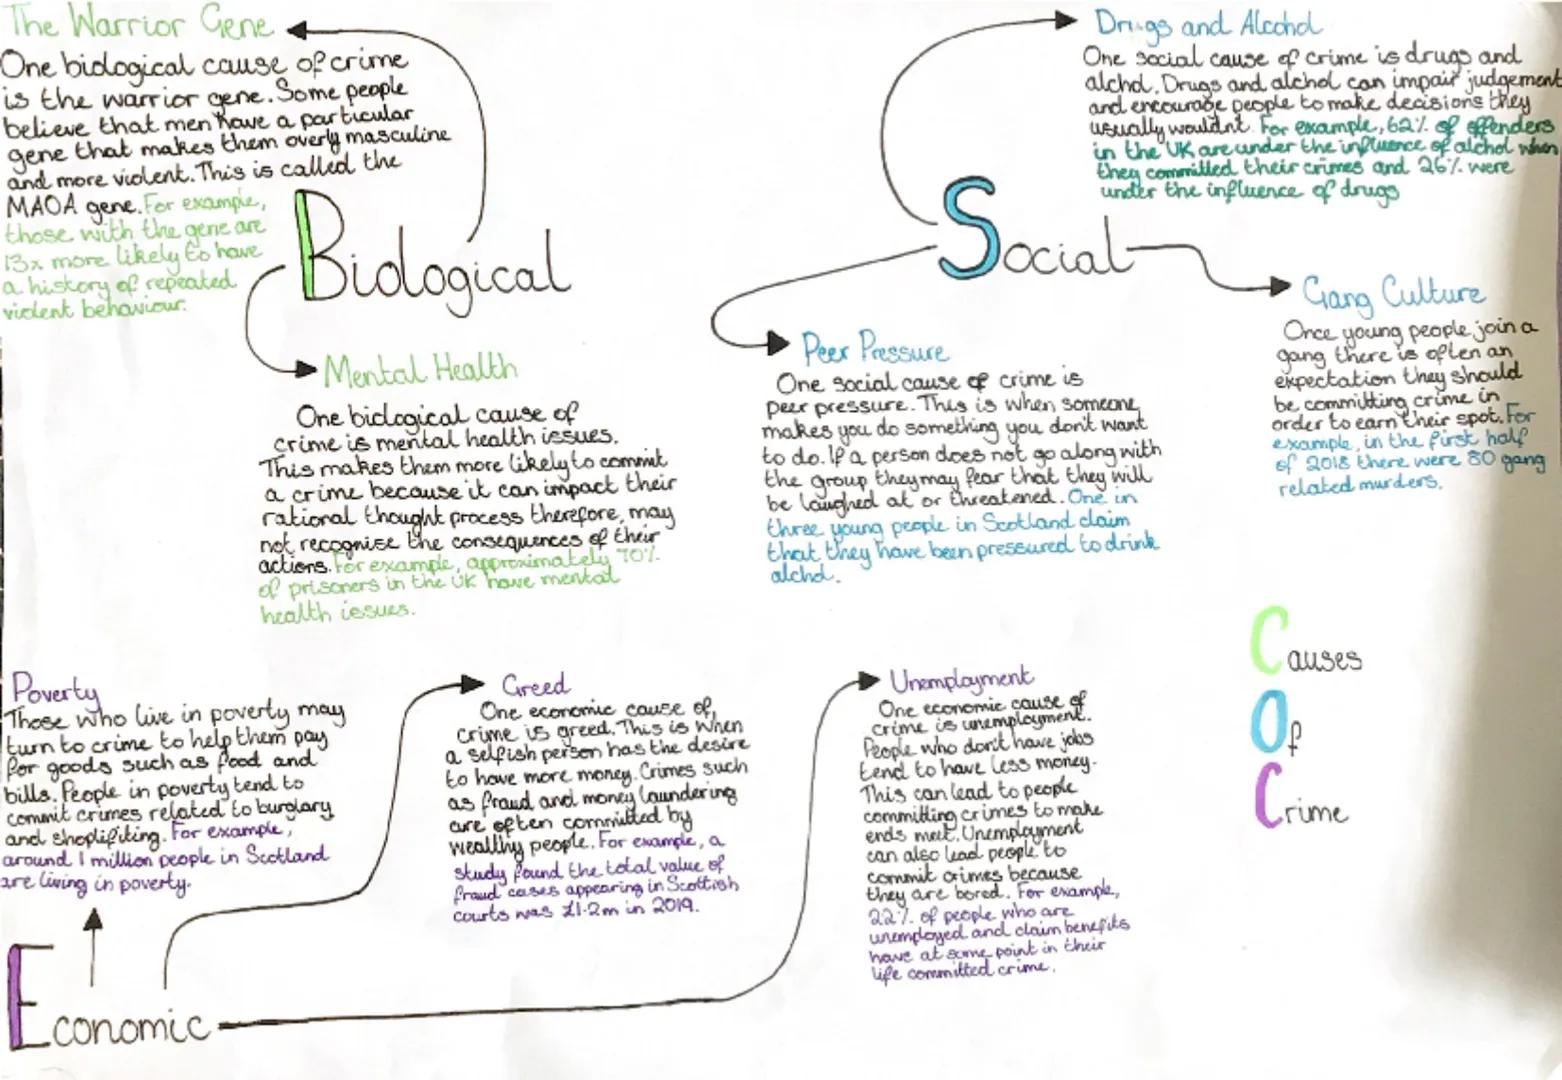 The Warrior Gene
One biological cause of crime
is the warrior gene. Some people
believe that men have a particular
gene that makes them overly masculine
and more violent. This is called the
MAOA gene. For example,
those with the gene are
13x more likely to have
a history of repeated
violent behaviour.
Biological
Mental Health
One biological cause of
crime is mental health issues.
This makes them more likely to commit
a crime because it can impact their
rational thought process therefore, may
not recognise the consequences of their
actions. For example, approximately 70%
of prisoners in the UK have mental
health issues.
Drugs and Alcohol
One social cause of crime is drugs and
alchol. Drugs and alchol can impair judgement
and encourage people to make decisions they
usually wouldnt. For example, 62% of offenders
in the UK are under the influence of alchol when
they committed their crimes and 26% were
under the influence of drugs
Social
Peer Pressure
One social cause of crime is
peer pressure. This is when someone
makes you do something you don't want
to do. If a person does not go along with
the group they may fear that they will
be laughed at or threatened. One in
three young people in Scotland claim
that they have been pressured to drink
alchol.
Gang Culture
Once young people join a
gang there is often an
expectation they should
be committing crime in
order to earn their spot. For
example, in the first half
of 2018 there were 30 gang
related murders.
Poverty
Those who live in poverty may
turn to crime to help them pay
for goods such as food and
bills. People in poverty tend to
commit crimes related to burglary
and shoplifting. For example,
around 1 million people in Scotland
are living in poverty.
Greed
One economic cause of
crime is greed. This is when
a selfish person has the desire
to have more money. Crimes such
as fraud and money laundering
are often committed by
wealthy people. For example, a
study found the total value of
fraud cases appearing in Scottish
courts was £1.2m in 2019.
Unemployment
One economic cause of
crime is unemployment.
People who don't have jobs
tend to have less money.
This can lead to people
committing crimes to make
ends meet. Unemployment
can also lead people to
commit crimes because
they are bored. For example,
22% of people who are
unemployed and claim benefits
have at some point in their
life committed crime.
Economic
Causes
Of
Crime